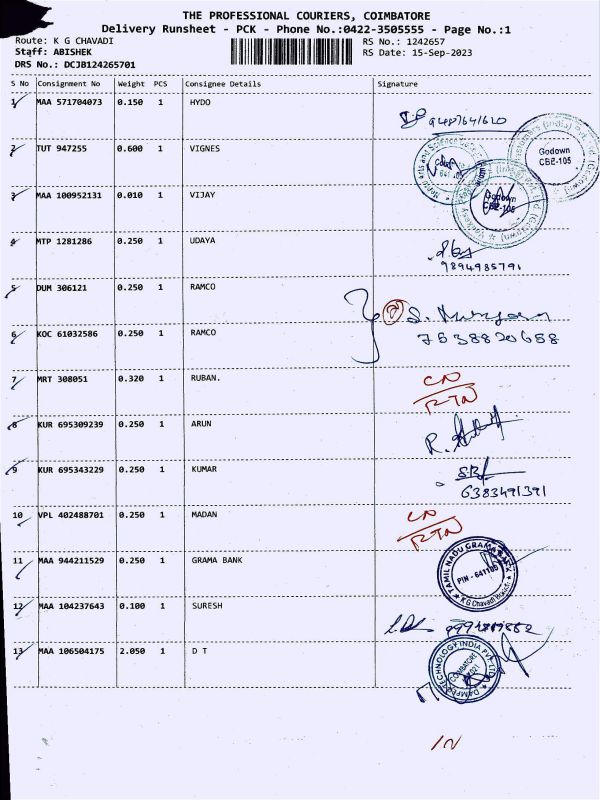 THE PROFESSIONAL COURIERS, COIMBATORE
Delivery Runsheet - PCK - Phone No.:0422-3505555 - Page No.:1
Route: K G CHAVADI RS No.: 1242657
Staff: ABISHEK RS Date: 15-Sep-2023
DRS No.: DCJB124265701
S No Consignment No Weight PCS Consignee Details Signature
1 MAA 571704073 0.150 1 HYDO
2 TUT 947255 0.600 1 VIGNES
Godown
CBE-105
3 MAA 100952131 0.010 1 VIJAY
Godown
CBE-105
4 MTP 1281286 0.250 1 UDAYA
9894985791
5 DUM 306121 0.250 1 RAMCO
6 KOC 61032586 0.250 1 RAMCO
7538820658
7 MRT 308051 0.320 1 RUBAN.
CN
RTN
8 KUR 695309239 0.250 1 ARUN
9 KUR 695343229 0.250 1 KUMAR
6383491391
10 VPL 402488701 0.250 1 MADAN
CN
RTN
11 MAA 944211529 0.250 1 GRAMA BANK
TAMIL NADU GRAMA BANK
PIN - 641105
K G Chavadi Branch
12 MAA 104237643 0.100 1 SURESH
13 MAA 106504175 2.050 1 D T
TECHNOLOGY INDIA PVT LTD
COIMBATORE